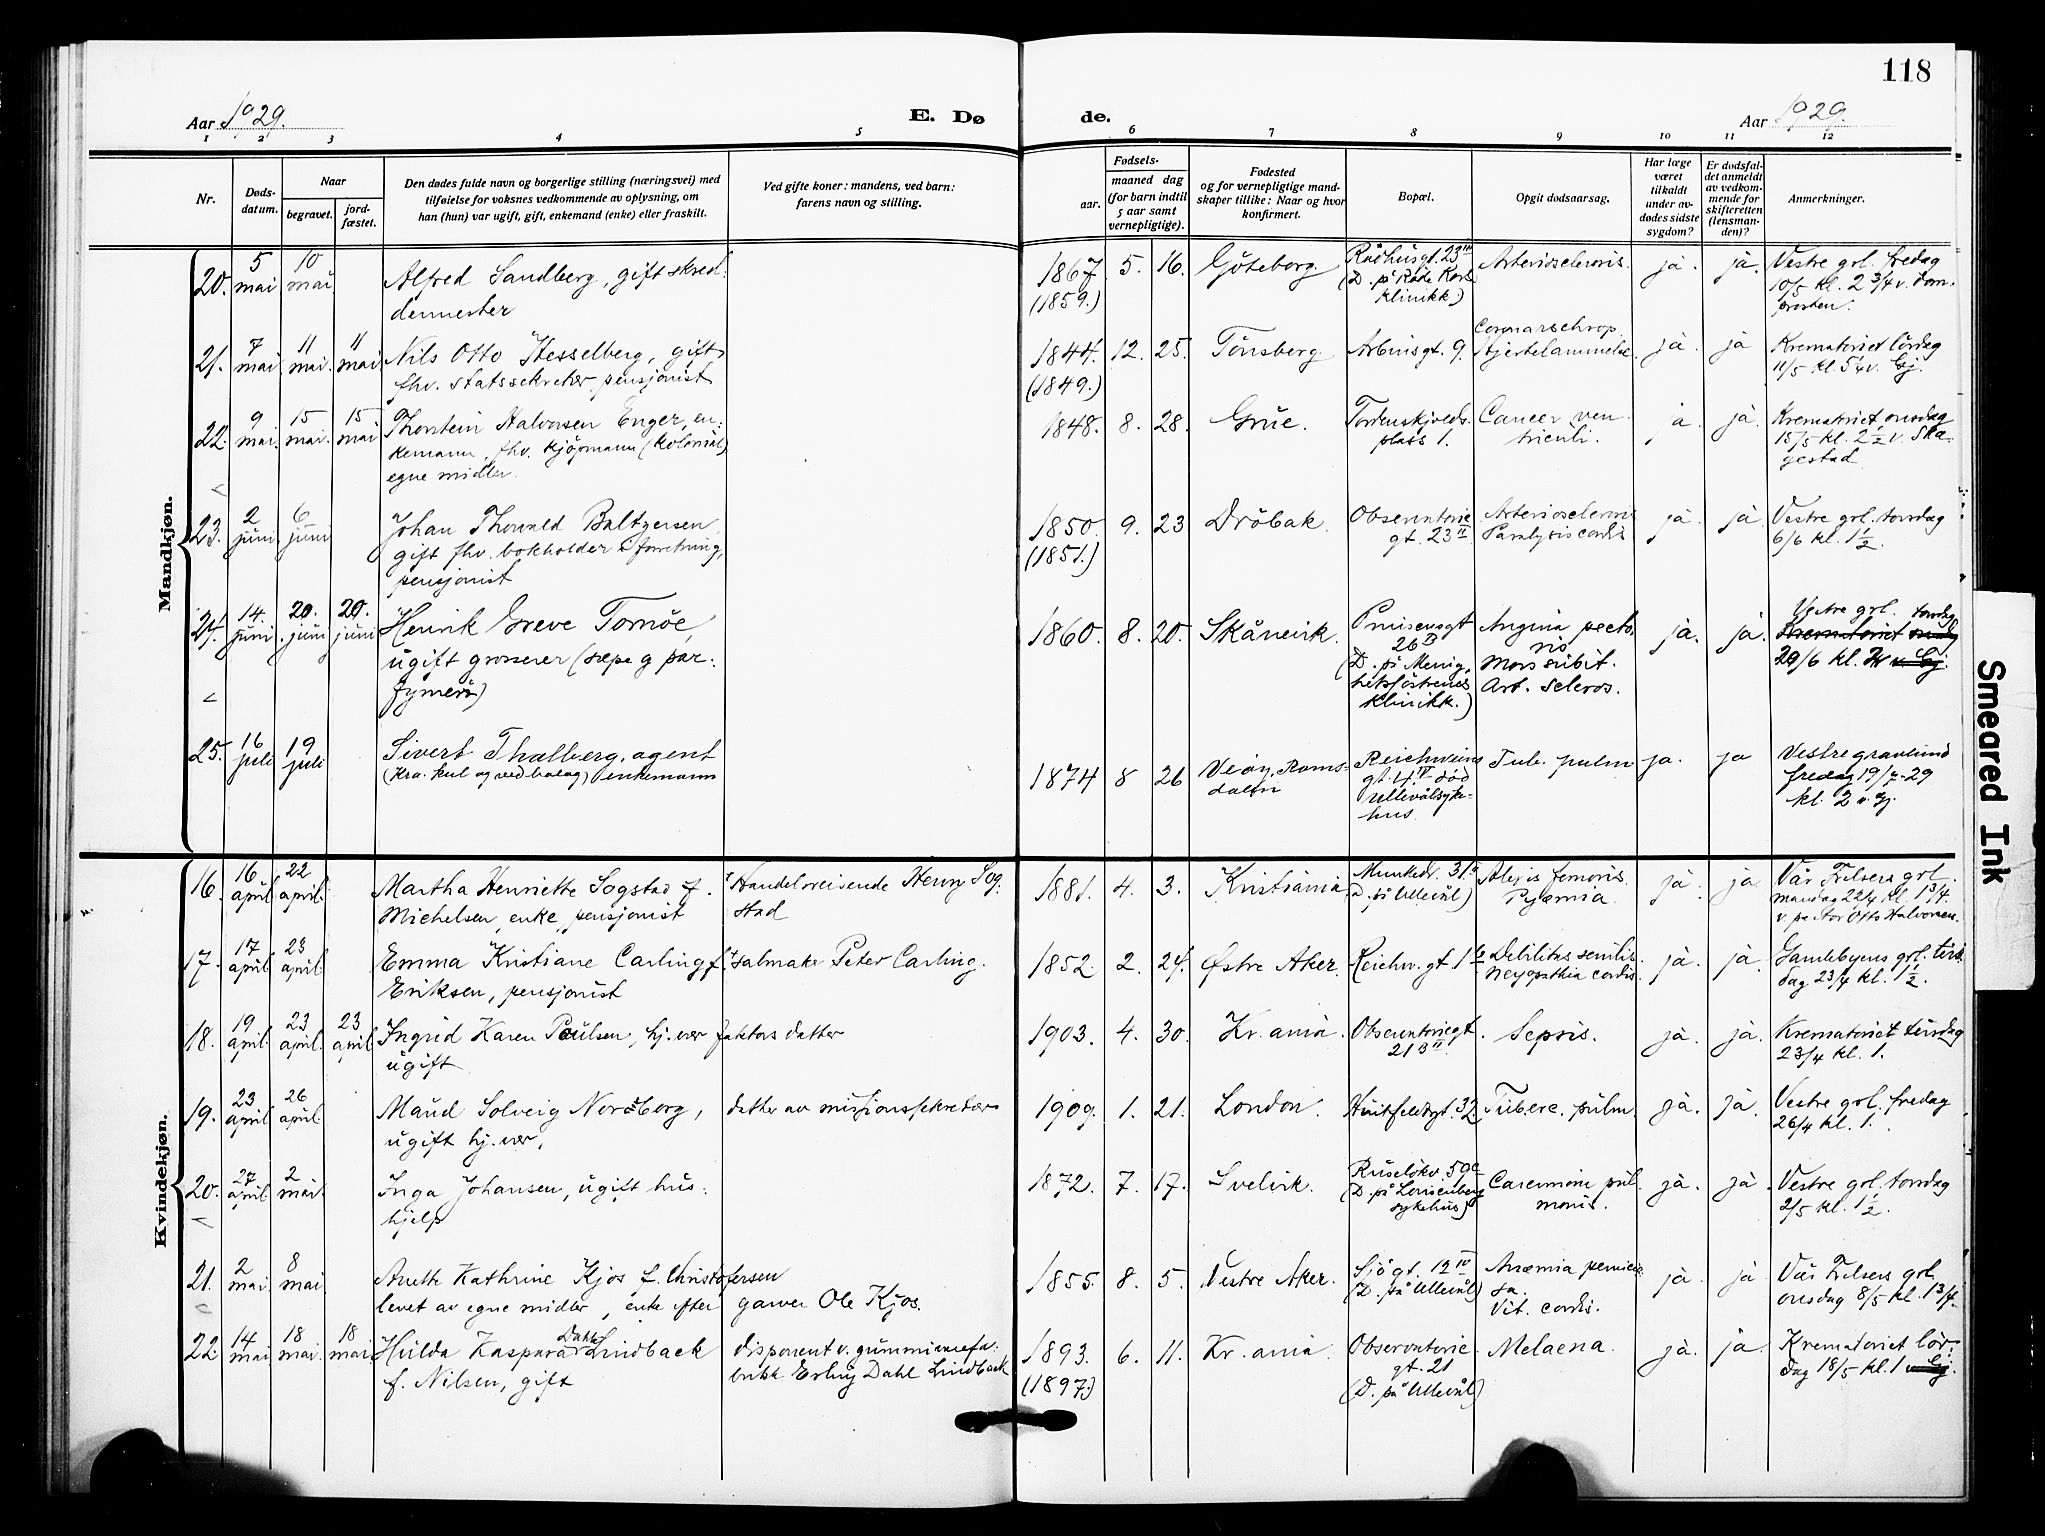 118
Aar 1929.
E. Dø de.
Aar 1929.
1 2 3 4 5 6 7 8 9 10 11 12
Nr.
Døds-
datum.
Naar
begravet.
jord-
fæstet.
Den dødes fulde navn og borgerlige stilling (næringsvei) med
tilføielse for voksnes vedkommende av oplysning, om
han (hun) var ugift, gift, enkemand (enke) eller fraskilt.
Ved gifte koner: mandens, ved barn:
farens navn og stilling.
Fødsels-
aar.
maaned dag
(for barn indtil
5 aar samt
vernepligtige).
Fødested
og for vernepligtige mand-
skaper tillike: Naar og hvor
konfirmert.
Bopæl.
Opgit dødsaarsag.
Har læge
været
tilkaldt
under av-
dødes sidste
sygdom?
Er dødsfal-
det anmeldt
av vedkom-
mende for
skifteretten
(lensman-
den)?
Anmerkninger.
Mandkjøn.
20. 5 mai 10 mai
Alfred Sandberg, gift skred-
dermester
1867 (1859.) 5. 16. Göteborg.
Rådhusgt. 23 III
(D. på Røde Kors
klinikk)
Arteriosclerosis. ja. ja.
Vestre grl. fredag
10/5 kl. 2 3/4 v. Dom-
prosten.
21. 7 mai. 11 mai. 11 mai.
Nils Otto Hesselberg, gift
fhv. statssekretær, pensjonist
1844. (1849.) 12. 25. Tönsberg. Arbinsgt. 9.
Hjertelammelse. ja. ja
Krematoriet lördag
11/5 kl. 5 1/4 v. Gj.
22. 9 mai. 15 mai. 15 mai
Thorstein Halvorsen Enger, en-
kemann, fhv. kjöpmann (kolonial)
egne midler.
1848. 8. 28. Grue.
Tordenskjolds
plass 1.
Cancer ven-
triculi. ja. ja.
Krematoriet, onsdag
15/5 kl. 2 1/2 v. Ska-
gestad
23. 2 juni 6 juni
Johan Thorvald Baltzersen,
gift fhv. bokholder i forretning,
pensjonist
1850. (1851.) 9. 23 Dröbak.
Observatorie
gt. 23 II
Arteriosclerosis
Paralysis cordis ja. ja.
Vestre grl. torsdag
6/6 kl. 1 1/2.
24. 14. juni 20. juni 20. juni
Henrik Greve Tornöe,
ugift grosserer (sæpe g par-
fymeri)
1860. 8. 20. Skånevik.
Prinsensgt
26 II
(D. på Menig-
hetssöstrenes
klinikk.)
Angina pecto-
ris
Mors subit.
Art. scleros. ja. ja.
Vestre grl. torsdag
Krematoriet
20/6 kl.
25. 16 juli 19 juli
Sivert Thalberg, agent
(Kra. kul og vedbolag) enkemann
1874 8 26 Veöy, Roms-
dalen
Reichweins
gt. 4 IV död
Ullevålsyke-
hus.
Tub. pulm ja. ja
Vestre gravlund
fredag 19/7-29
kl. 2 v. Gj.
Kvindekjøn.
16. 16 april 22 april.
Martha Henriette Sogstad f.
Michelsen, enke, pensjonist
Handelsreisende Henry Sog-
stad
1881. 4. 3. Kristiania
Munkedv. 31
(D. på Ullevål)
femoris.
Pyæmia. ja. ja
Vår Frelsers grl.
mandag 22/4 kl. 1 3/4.
v. pastor Otto Halvorsen.
17. 17 april. 23 april.
Emma Kristiane Carling f.
Eriksen, pensjonist
salmaker Peter Carling.
1852 2. 24. Østre Aker. Reichw. gt 1
Debilitas senilis.
Myopathia cordis. ja. ja.
Gamlebyens grl. tirs-
dag 23/4 kl. 1 1/2.
18. 19 april. 23 april. 23 april
Ingrid Karen Poulsen, hj. vær faktors datter
ugift
1903. 4. 30. Kr.ania.
Observatoriegt
21 3 II. Sepsis. ja. ja.
Krematoriet tirsdag
23/4 kl. 1.
19. 23 april 26 april.
Maud Solveig Nordborg,
ugift hj. vær,
datter av misjonssekretær
1909. 1. 21. London. Huitfeldtsgt. 32. Tuberc. pulm. ja. ja.
Vestre grl. fredag
26/4 kl. 1.
20. 27 april. 2 mai.
Inga Johansen, ugift hus-
hjelp
1872. 7. 17. Svelvik.
Ruseløkv. 59
(D. på Lovisenberg
sykehus)
Carcinoma pul-
monis. ja. ja.
Vestre grl. torsdag
2/5 kl. 1 1/2.
21. 2 mai. 8 mai
Anette Kathrine Kjos f. Christofersen
levet av egne midler, enke efter garver Ole Kjos.
1855. 8. 5. Vestre Aker.
Sjögt. 12 IV
(D. på Ullevål)
Anæmia pernicio-
sa.
Vit. cordis. ja. ja
Vår Frelsers grl.
onsdag 8/5 kl. 1 3/4.
22. 14 mai 18 mai. 18 mai
Hilda Kaspara Dahl Lindback
f. Nilsen, gift
disponent v. gummivarefa-
brikk Erling Dahl Lindback
1893. (1897.) 6. 11. Kr.ania.
Observatorie
gt. 21
(D. på Ullevål)
Melaena. ja. ja.
Krematoriet lör-
dag 18/5 kl. 1 v. Gj.
Smeared Ink